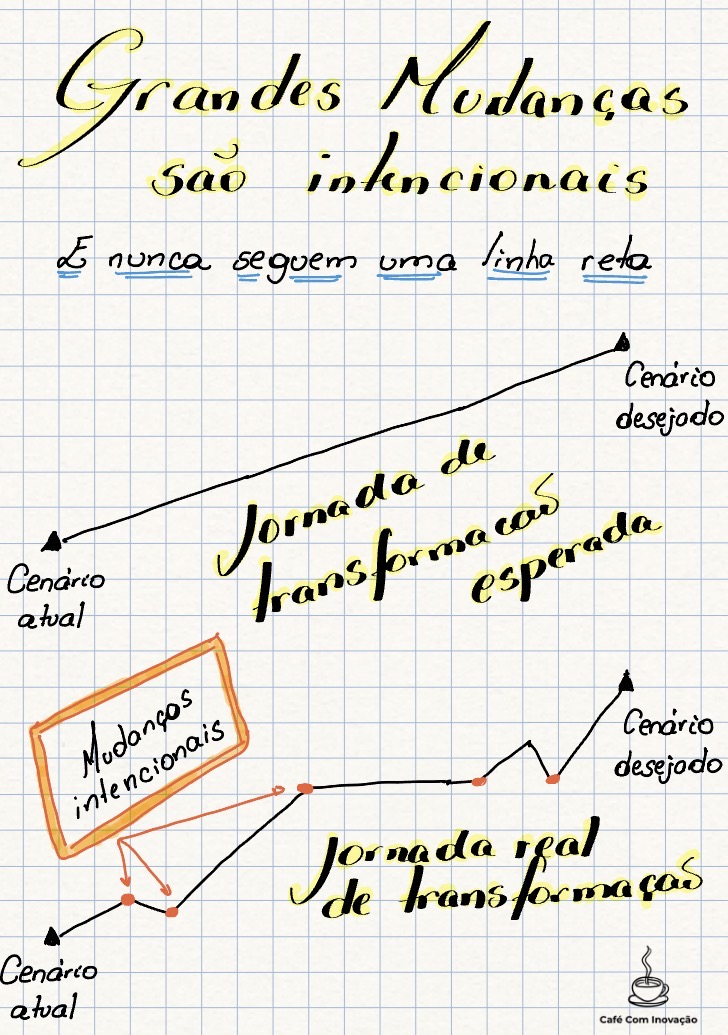 Grandes Mudanças
são intencionais
E nunca seguem uma linha reta
Cenário
desejado
Jornada de
transformacão
esperada
Cenário
atual
Mudanços
intencionais
Cenário
desejado
Jornada real
de transformação
Cenário
atual
Café Com Inovação